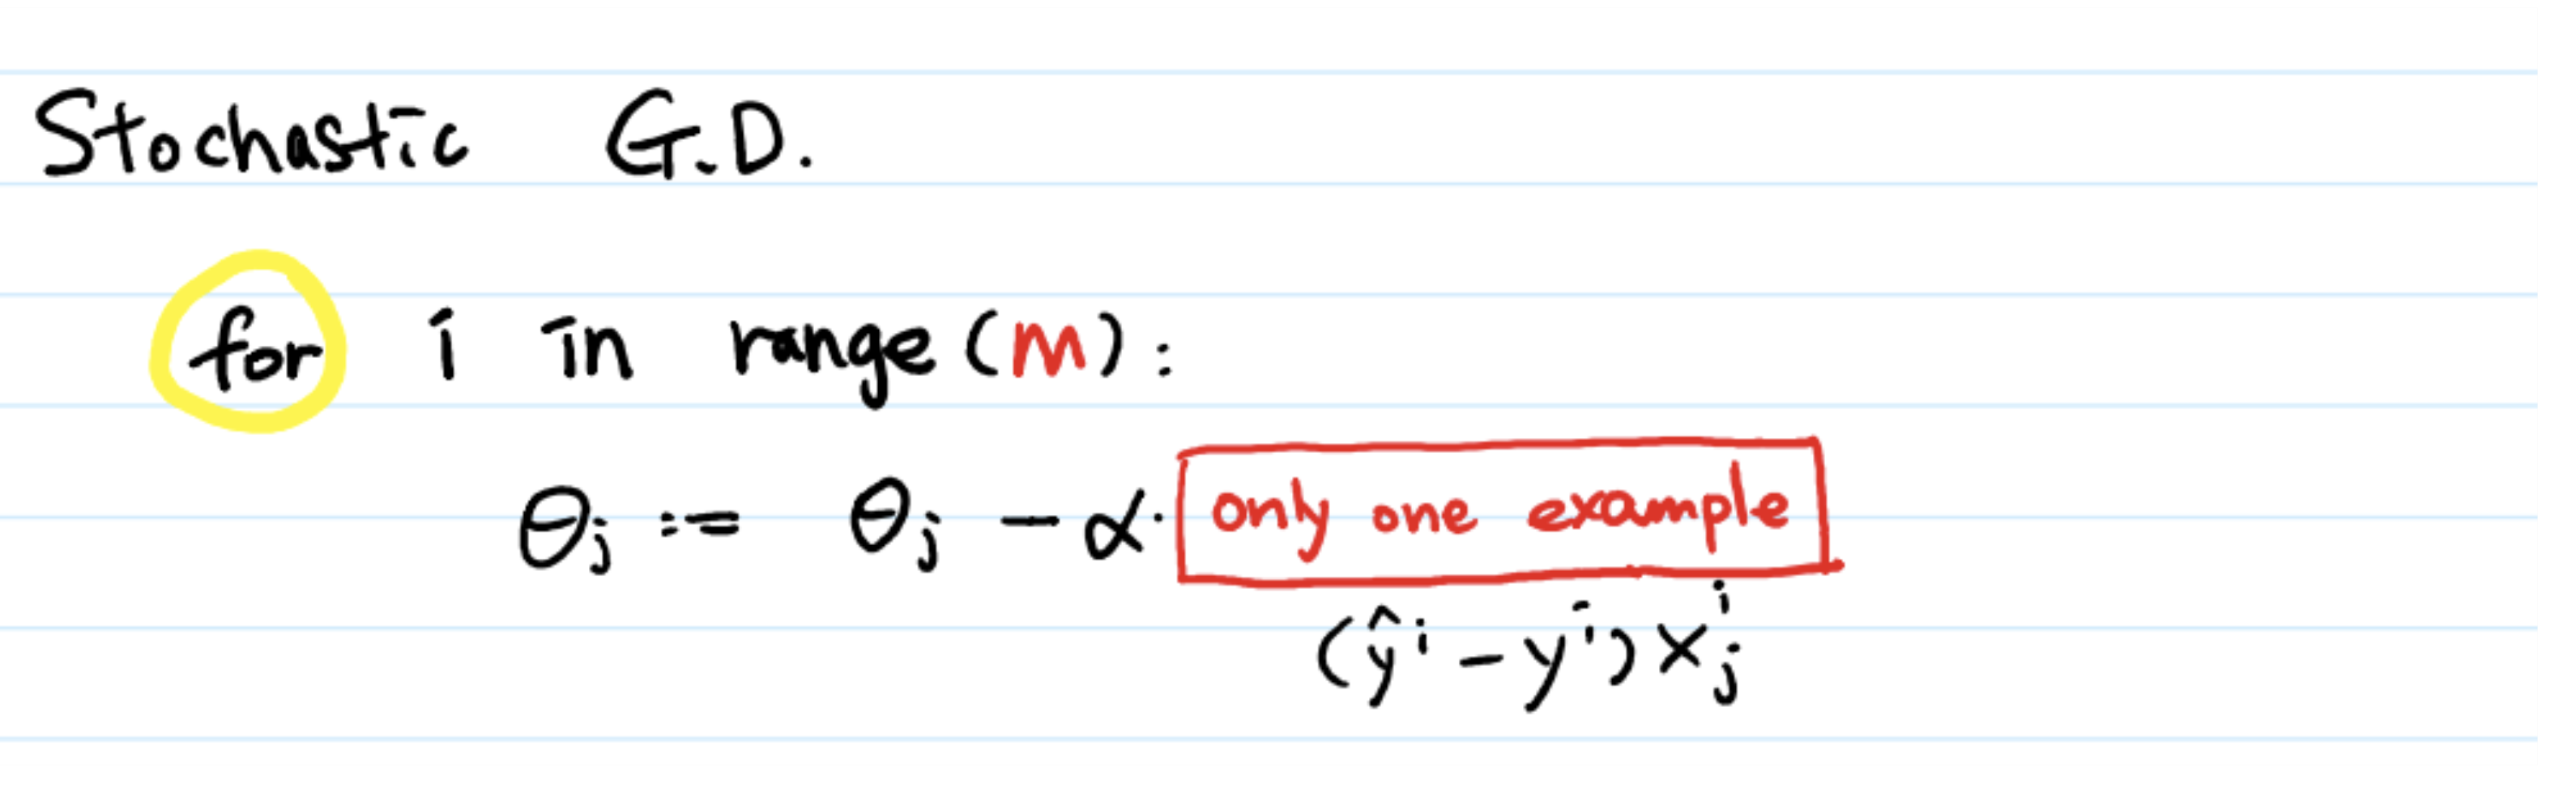 Stochastic G.D.
for i in range(m):
θj := θj - α· only one example
(ŷ^i - y^i) x_j^i